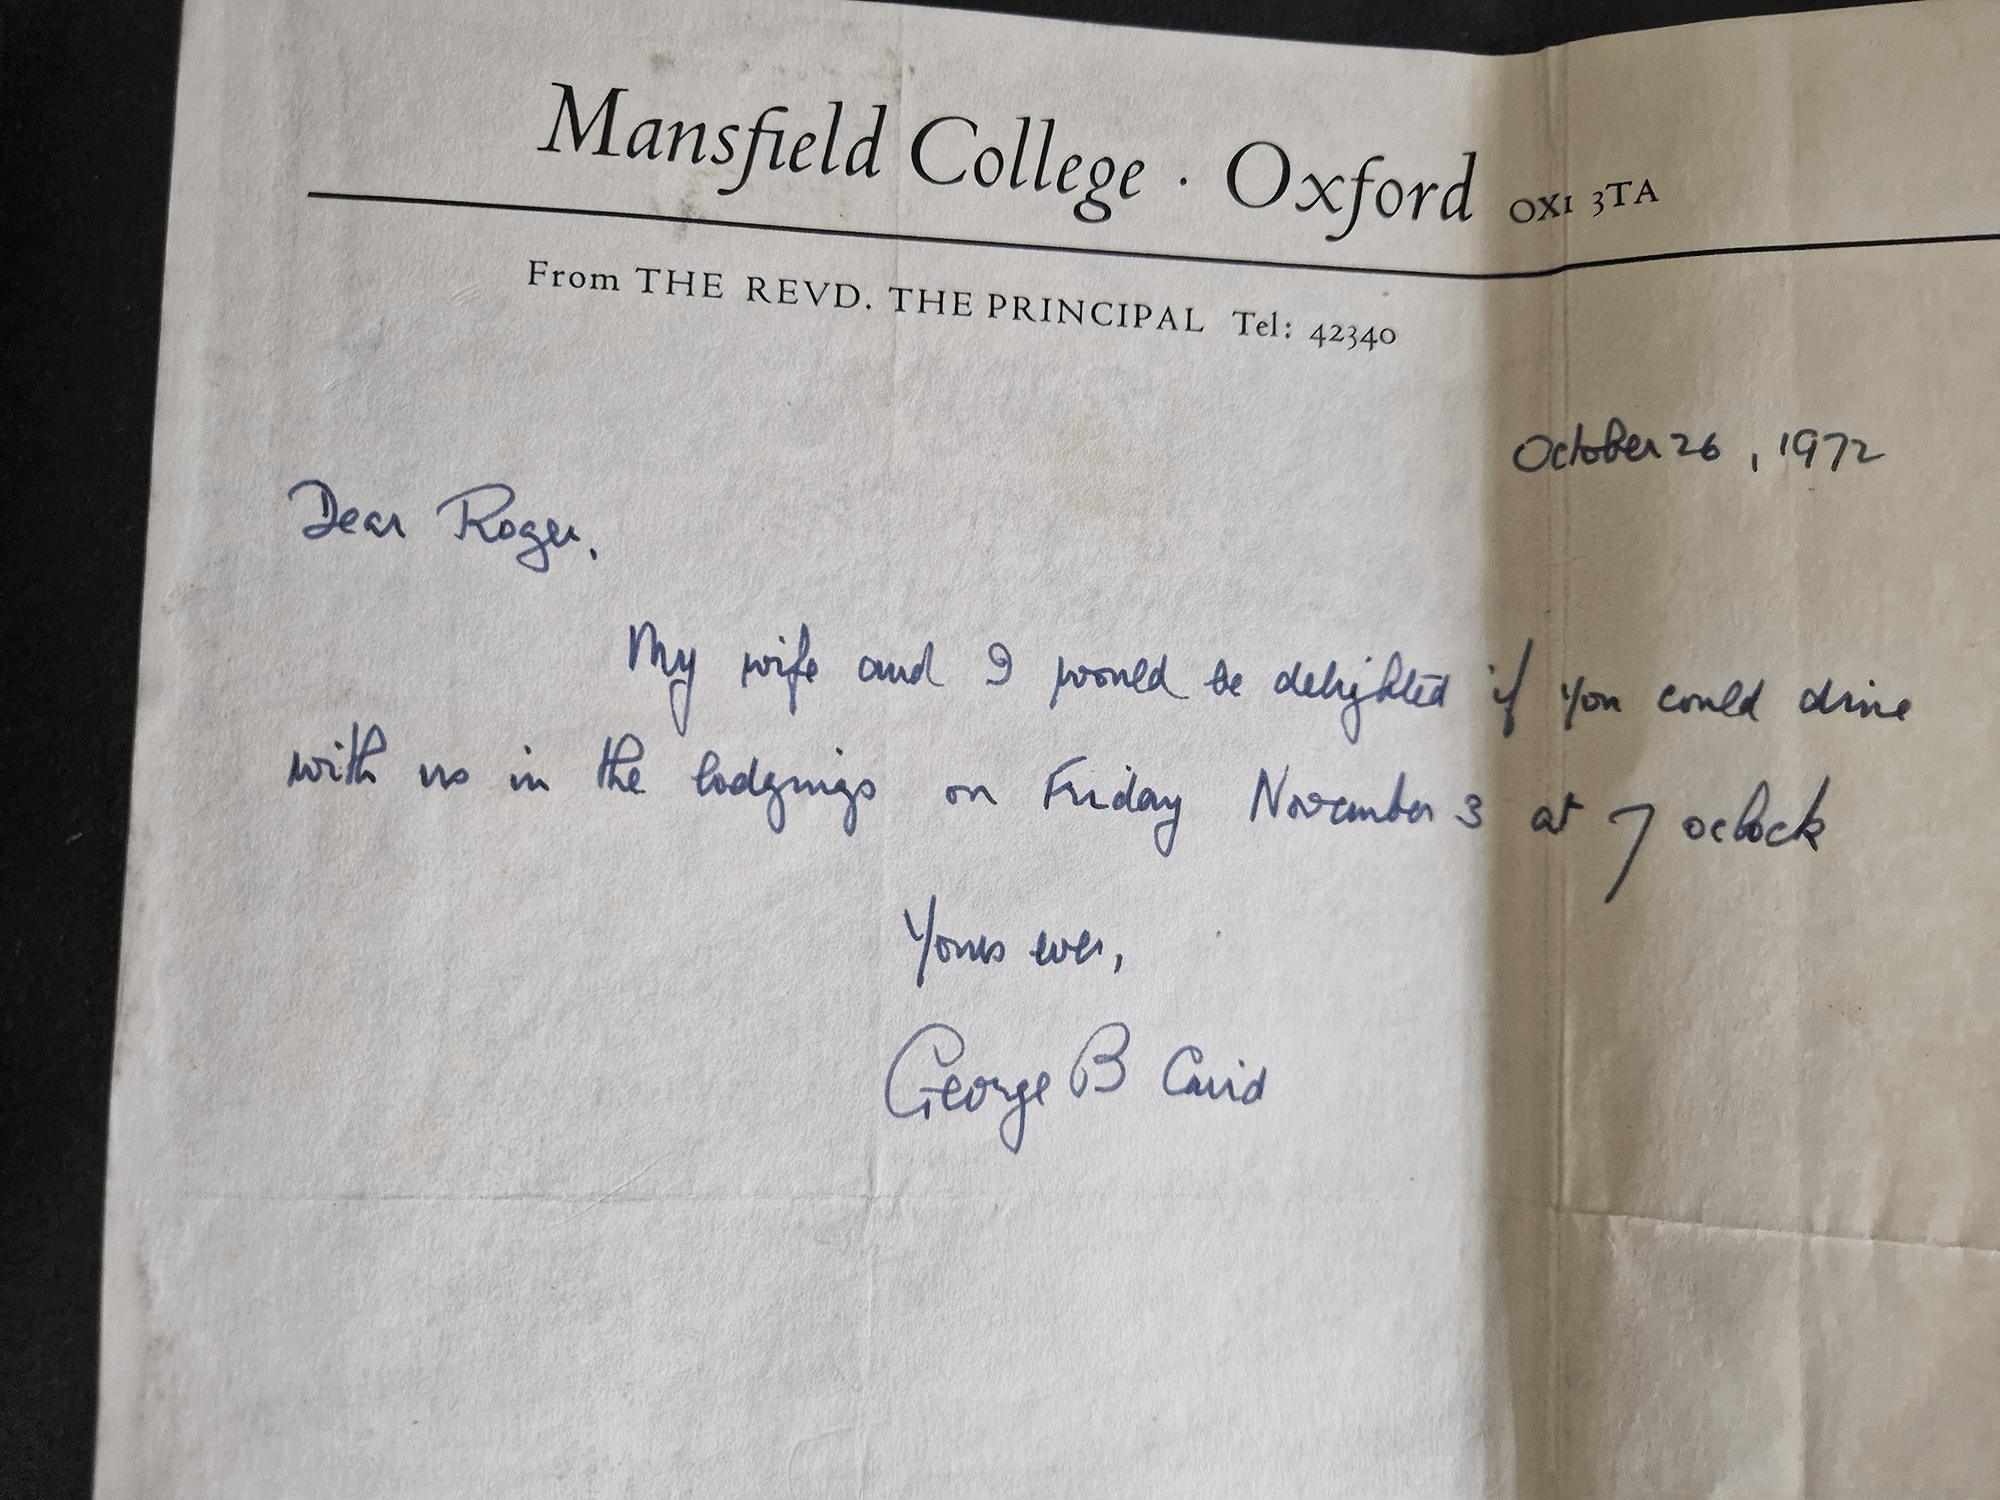 Mansfield College · Oxford OX1 3TA
From THE REVD. THE PRINCIPAL Tel: 42340
October 26, 1972
Dear Roger,
My wife and I would be delighted if you could dine
with us in the lodgings on Friday November 3 at 7 oclock
Yours ever,
George B Caird